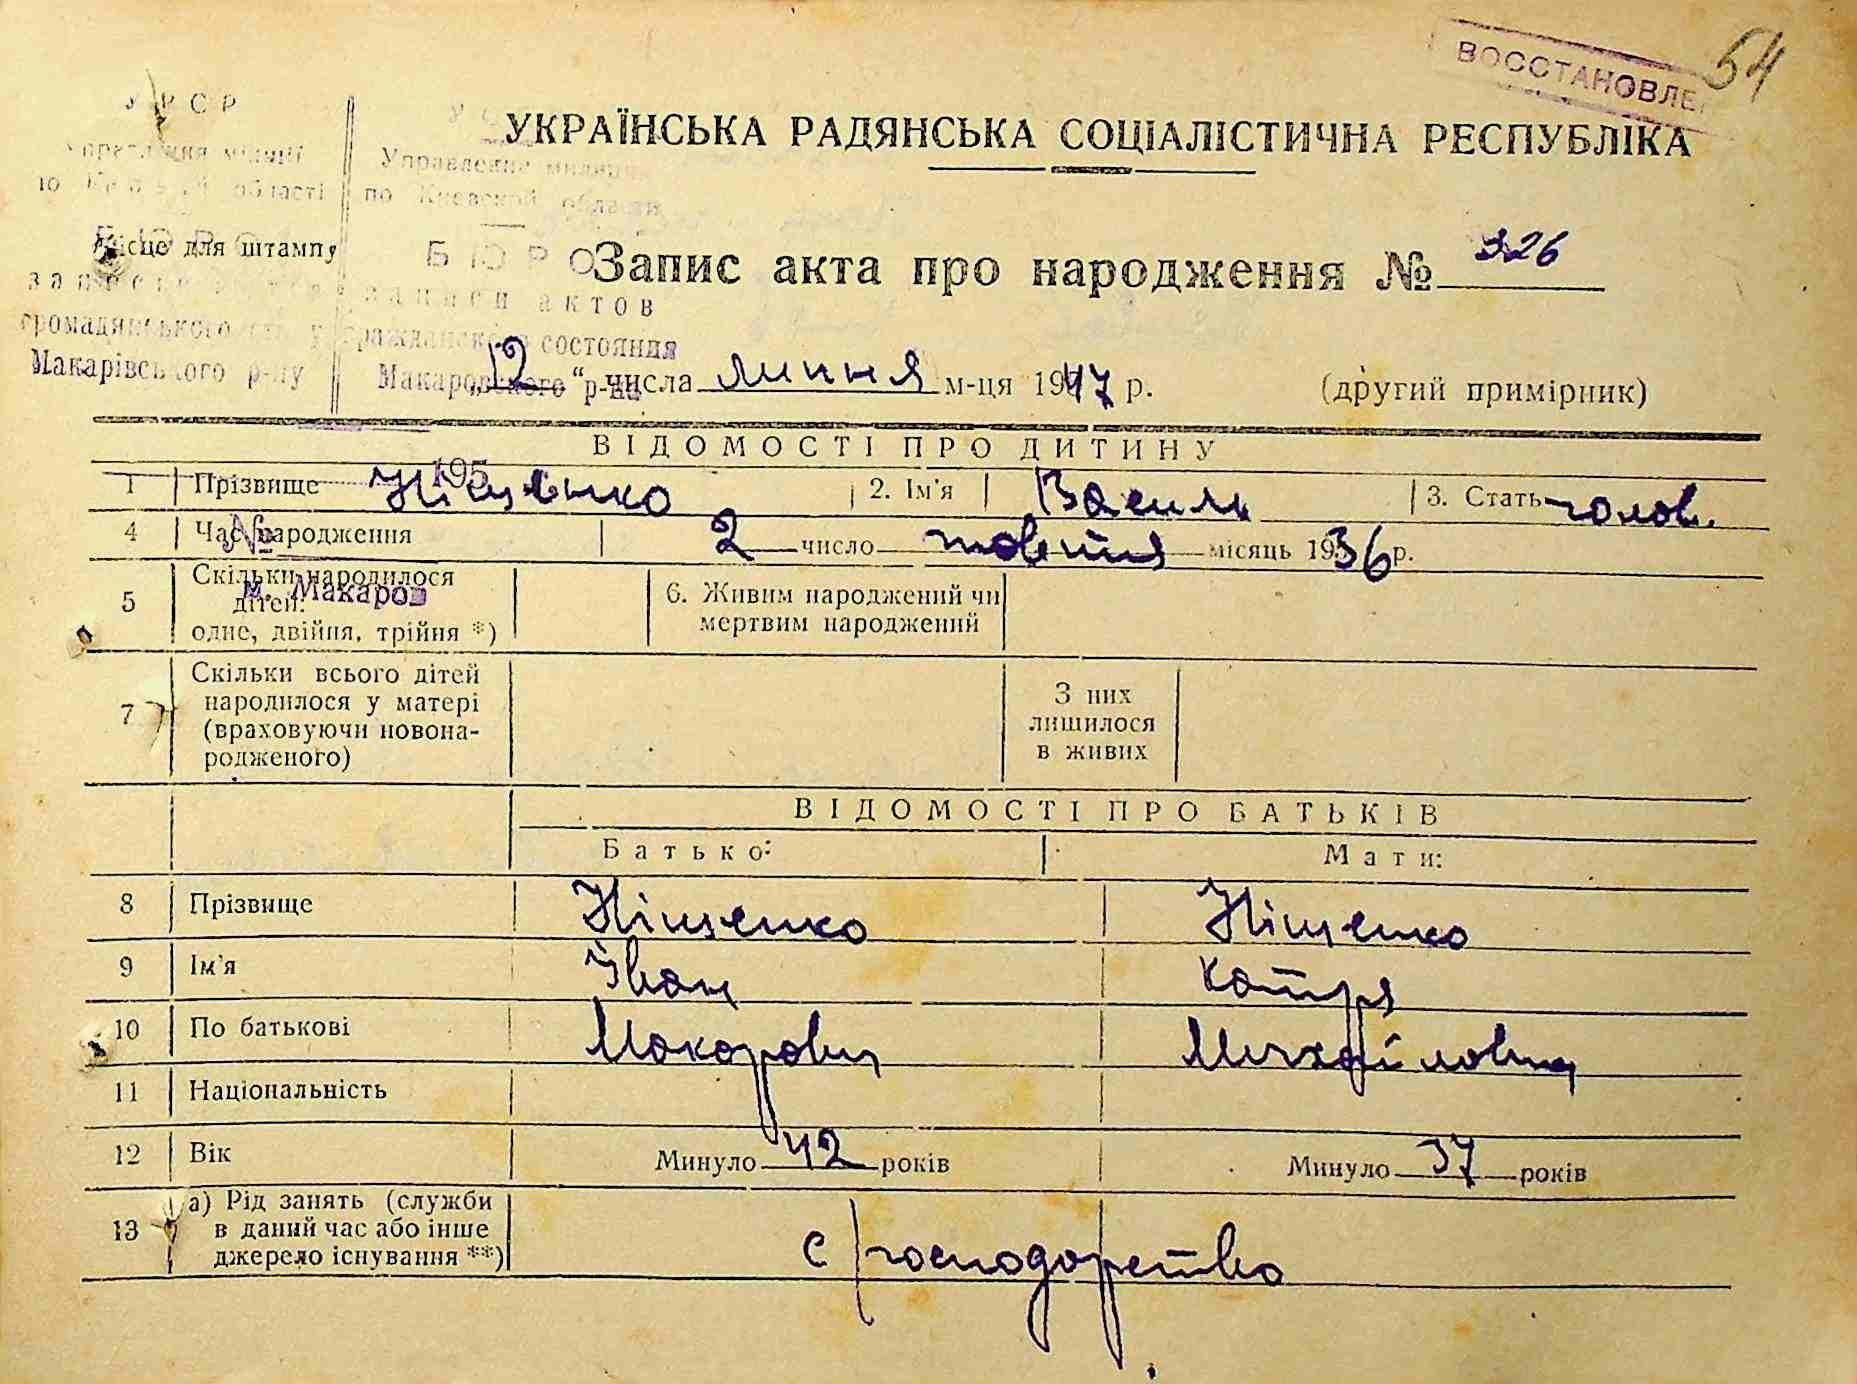 54
ВОССТАНОВЛЕ
УРСР
УКРАЇНСЬКА РАДЯНСЬКА СОЦІАЛІСТИЧНА РЕСПУБЛІКА
Управление милиции
області по Киевской области
Місце для штампу
БЮРО
Запис акта про народження № 326
записи актов
громадянського гражданского состояния
Макарівського р-ну Макаровского р-на
„12“ числа липня м-ця 1947 р. (другий примірник)
ВІДОМОСТІ ПРО ДИТИНУ
195
1 Прізвище Ніщенко 2. Ім'я Василь 3. Стать чолов.
№
4 Час народження 2 число жовтня місяць 1936 р.
м. Макаров
5 Скільки народилося дітей: одне, двійня, трійня *) 6. Живим народжений чи мертвим народжений
7 Скільки всього дітей народилося у матері (враховуючи новона-родженого) З них лишилося в живих
ВІДОМОСТІ ПРО БАТЬКІВ
Батько: Мати:
8 Прізвище Ніщенко Ніщенко
9 Ім'я Іван Катря
10 По батькові Макарович Михайловна
11 Національність
12 Вік Минуло 42 років Минуло 37 років
13 а) Рід занять (служби в даний час або інше джерело існування **) с/господарство